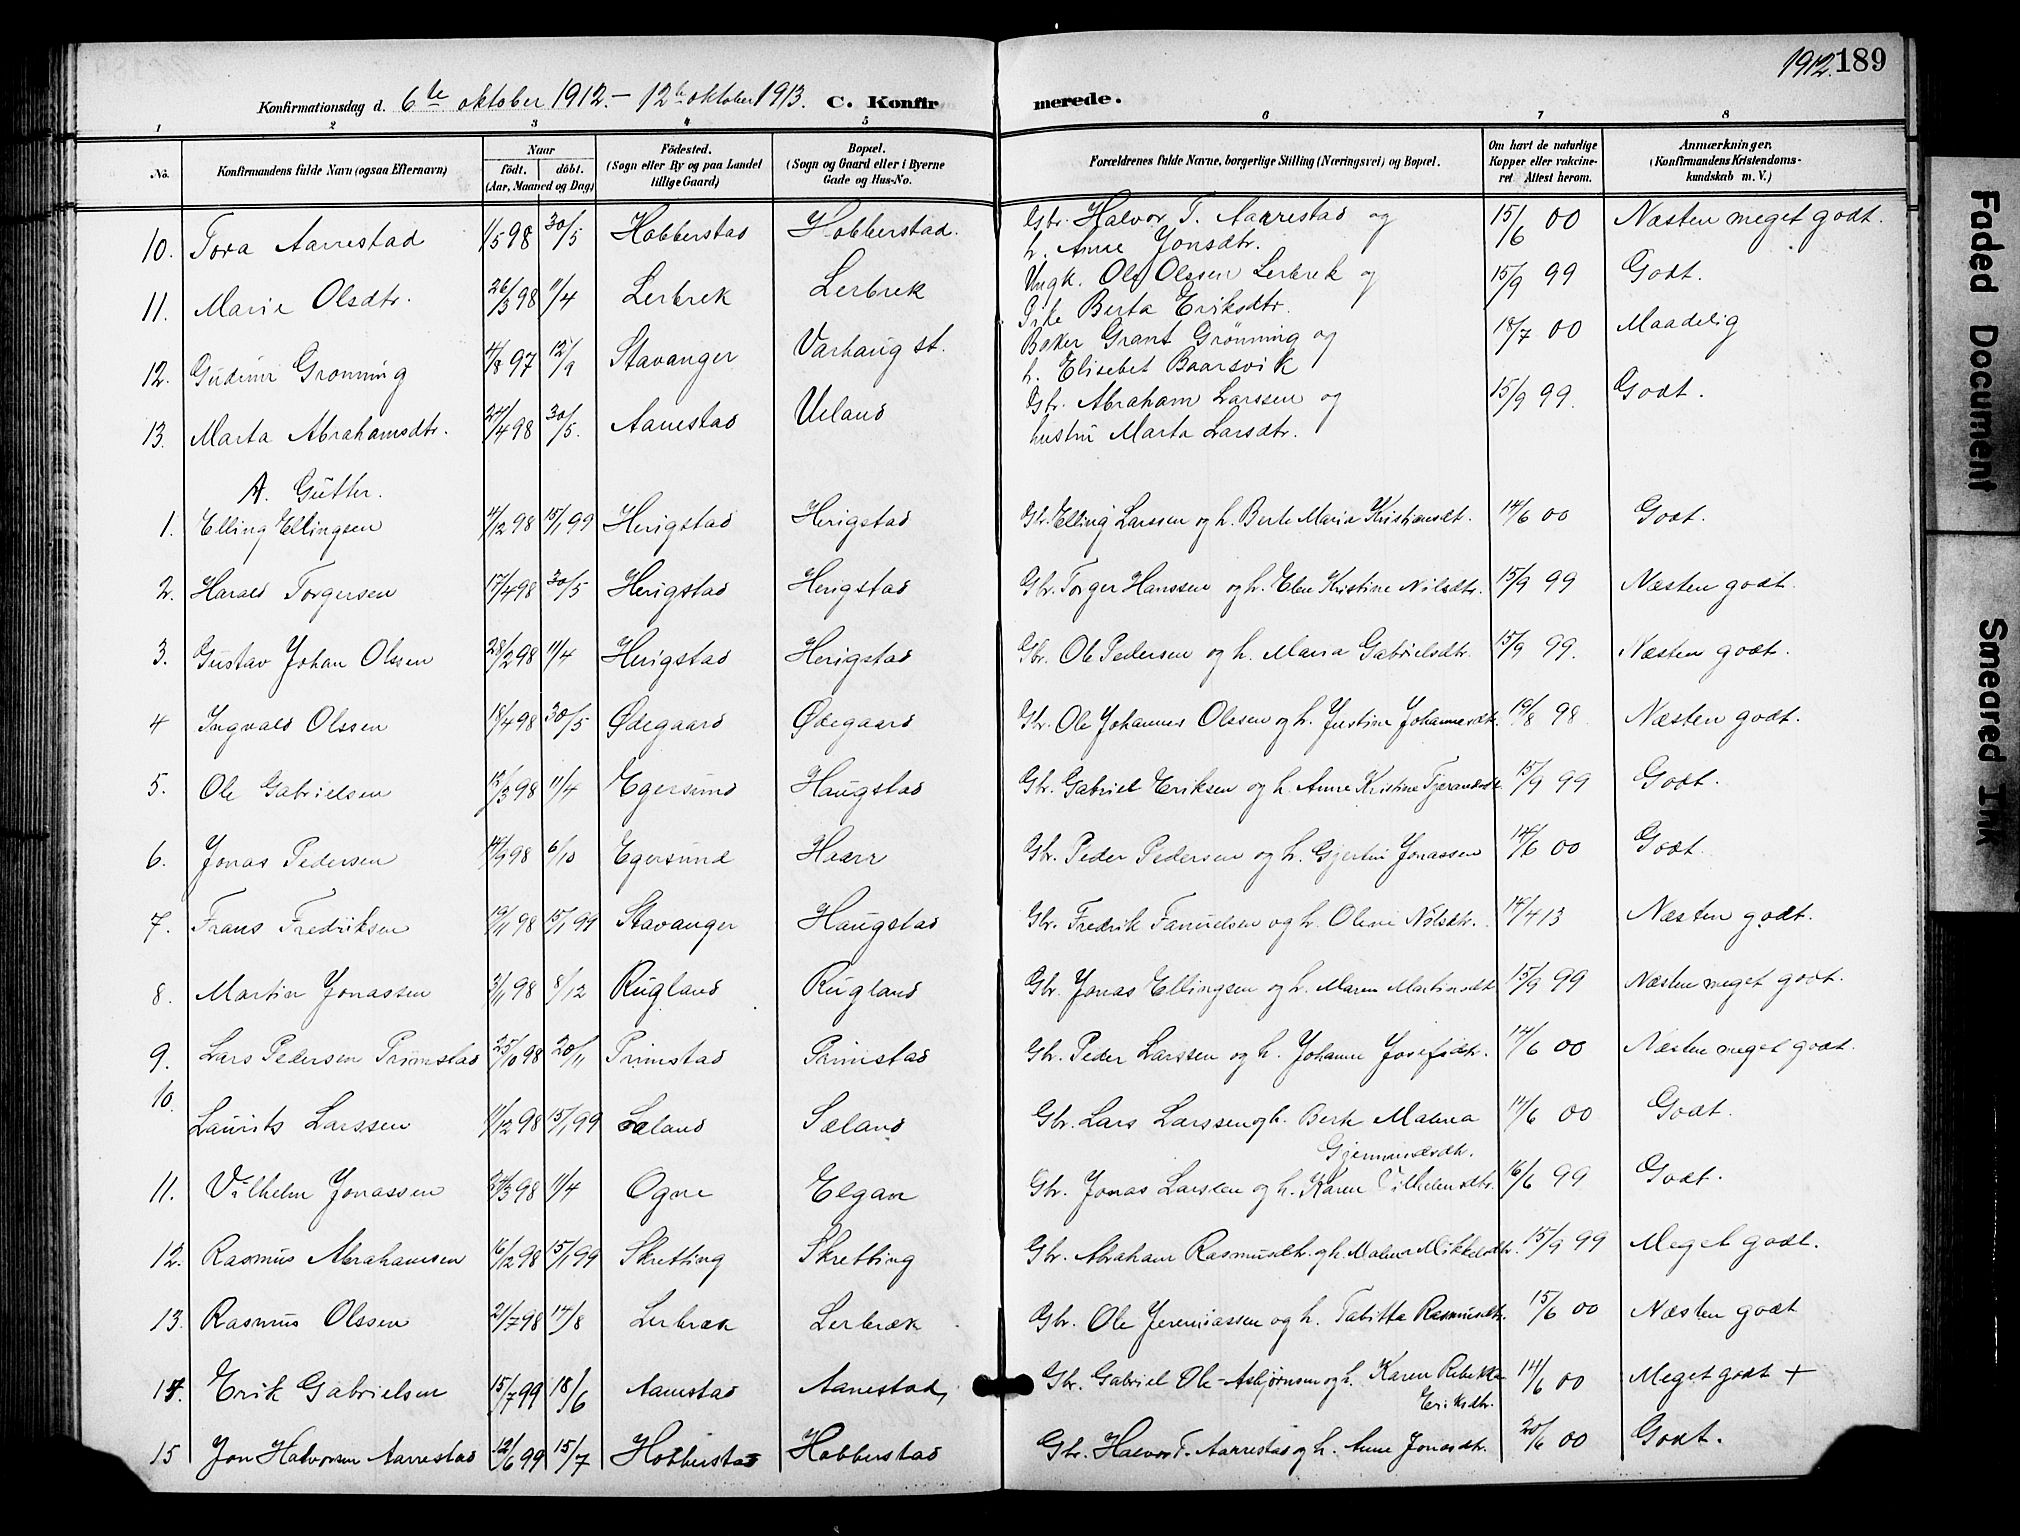 1912. 189
Konfirmationsdag d. 6te oktober 1912. - 12te oktober 1913. C. Konfirmerede.
1 2 3 4 5 6 7 8
No. Konfirmandens fulde Navn (ogsaa Efternavn) Naar födt. döbt. (Aar, Maaned og Dag) Födested. (Sogn eller By og paa Landet tillige Gaard) Bopæl. (Sogn og Gaard eller i Byerne Gade og Hus-No. Forældrenes fulde Navne, borgerlige Stilling (Næringsvei) og Bopæl. Om havt de naturlige Kopper eller vakcineret Attest herom. Anmærkninger, (Konfirmandens Kristendomskundskab m. V.)
10. Tora Aarrestad 1/5 98 30/5 Hobberstad Hobberstad. Gbr. Halvor T. Aarrestad og h. Anne Jonsdtr. 15/6 00 Næsten meget godt.
11. Marie Olsdtr. 26/3 98 11/4 Lerbrek Lerbrek Ungk. Ole Olssen Lerbrek og Pike Berta Eriksdtr. 15/9 99 Godt.
12. Gudrun Grønning 4/8 97 12/9 Stavanger Varhaug st. Baker Grant Grønning og h. Elisebet Baarsvik 18/7 00 Maadelig
13. Marta Abrahamsdtr. 24/4 98 30/5. Aanestad Ueland Gbr. Abraham Larssen og hustru Marta Larsdtr. 15/9 99. Godt.
A. Gutter.
1. Elling Ellingsen 4/12 98 15/1 99 Herigstad Herigstad Gbr. Elling Larssen og h. Berte Maria Kristiansdt. 14/6 00 Godt.
2. Harald Torgersen 17/4 98 30/5 Herigstad Herigstad Gbr. Torger Hanssen og h. Elen Kristine Nilsdtr. 15/9 99 Næsten godt.
3. Gustav Johan Olssen 28/2 98 11/4 Herigstad Herigstad Gbr. Ole Pedersen og h. Maria Gabrielsdtr. 15/9 99. Næsten godt.
4 Ingvald Olssen 18/4 98 30/5 Ødegaard Ødegaard Gbr. Ole Johannes Olssen og h. Justine Johannesdtr. 19/8 98 Næsten godt.
5. Ole Gabrielsen 13/3 98 11/4 Egersund Haugstad Gbr. Gabriel Eriksen og h. Anne Kristine Tjerandsdt. 15/9 99 Godt.
6. Jonas Pedersen 14/9 98 6/10 Egersund Haarr Gbr. Peder Pedersen og h. Gjertin Jonassen 14/6 00 Godt.
7. Frans Fredriksen 19/11 98 15/1 99 Stavanger Haugstad Gbr. Fredrik Fanuelsen og h. Oline Nilsdtr. 14/4 13 Næsten godt.
8. Martin Jonassen 3/11 98 8/12 Rugland Rugland Gbr. Jonas Ellingsen og h. Maren Martinsdt. 15/9 99 Næsten meget godt.
9. Lars Pedersen Primstad 25/10 98 20/11 Primstad Primstad Gbr. Peder Larssen og h. Johanne Josefsdtr. 14/6 00 Næsten meget godt.
10. Laurits Larssen 11/12 98 15/1 99 Sæland Sæland Gbr. Lars Larssen og h. Berte Malena Gjermundsdtr. 14/6 00 Godt.
11. Vilhelm Jonassen 24/3 98 11/4 Ogne Elgan Gbr. Jonas Larssen og h. Karen Vilhelmsdtr. 16/6 99 Godt.
12. Rasmus Abrahamsen 16/12 98 15/1 99 Skretting Skretting Gbr. Abraham Rasmusdtr. og h. Malene Mikkelsdtr. 15/9 99 Meget godt.
13. Rasmus Olssen 21/7 98 14/8 Lerbræk Lerbræk Gbr. Ole Jeremiassen og h. Tabitta Rasmusdtr. 15/6 00 Næsten godt
14. Erik Gabrielsen 15/7 99 18/6 Aanestad Aanestad, Gbr. Gabriel Ole Asbjørnsen og h. Karen Rebekka Eriksdtr. 14/6 00 Meget godt +
15 Jon Halvorsen Aarrestad 12/6 99 15/7 Hobberstad Hobberstad Gbr. Halvor T. Aarrestad og h. Anne Jonasdtr. 20/6 00 Godt.
Faded Document
Smeared Ink